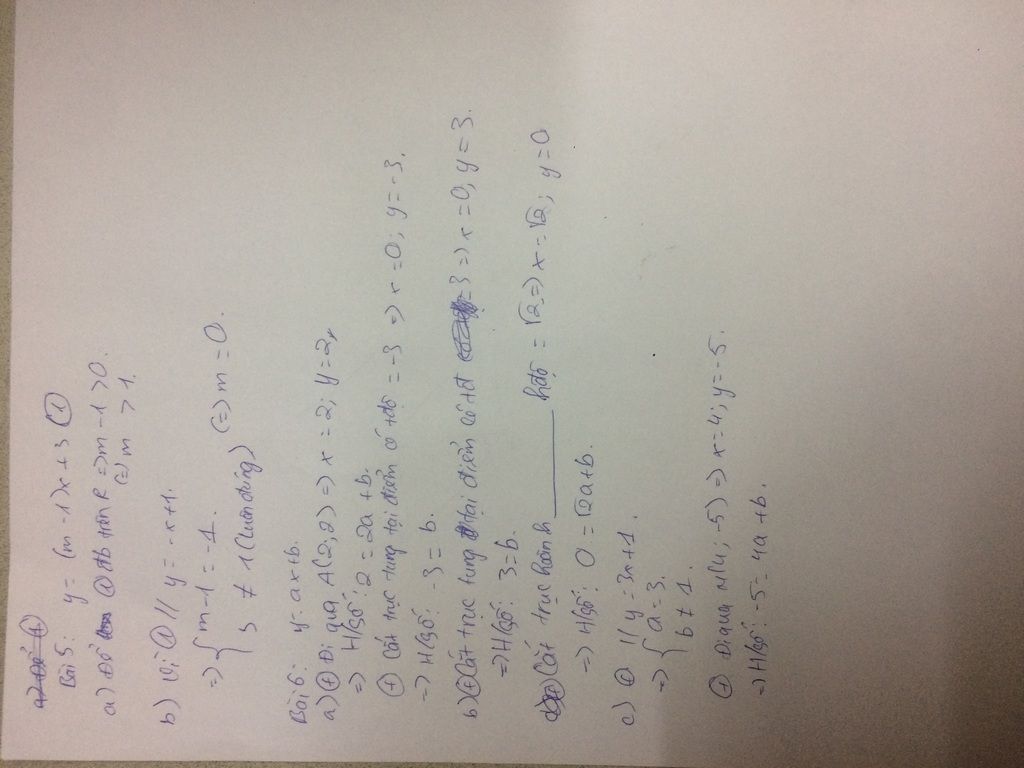 Bài 5: y = (m-1)x + 3 (1)
a) Để (1) đb trên R => m-1 > 0
(=) m > 1.
b) Vì (1) // y = -x+1.
=> { m-1 = -1
3 ≠ 1 (luôn đúng) (=) m = 0.
Bài 6: y = ax+b.
a) (+) Đi qua A(2,2) => x = 2; y = 2
=> H/số: 2 = 2a + b.
(+) Cắt trục tung tại điểm có tđộ = -3 => x = 0; y = -3.
=> H/số: -3 = b.
b) (+) Cắt trục tung tại điểm có tđ = 3 => x = 0, y = 3.
=> H/số: 3 = b.
(+) Cắt trục hoành ______ hđộ = √2 => x = √2; y = 0
=> H/số: 0 = √2a + b.
c) (+) // y = 3x + 1
=> { a = 3.
b ≠ 1.
(+) Đi qua M(4; -5) => x = 4; y = -5.
=> H/số: -5 = 4a + b.